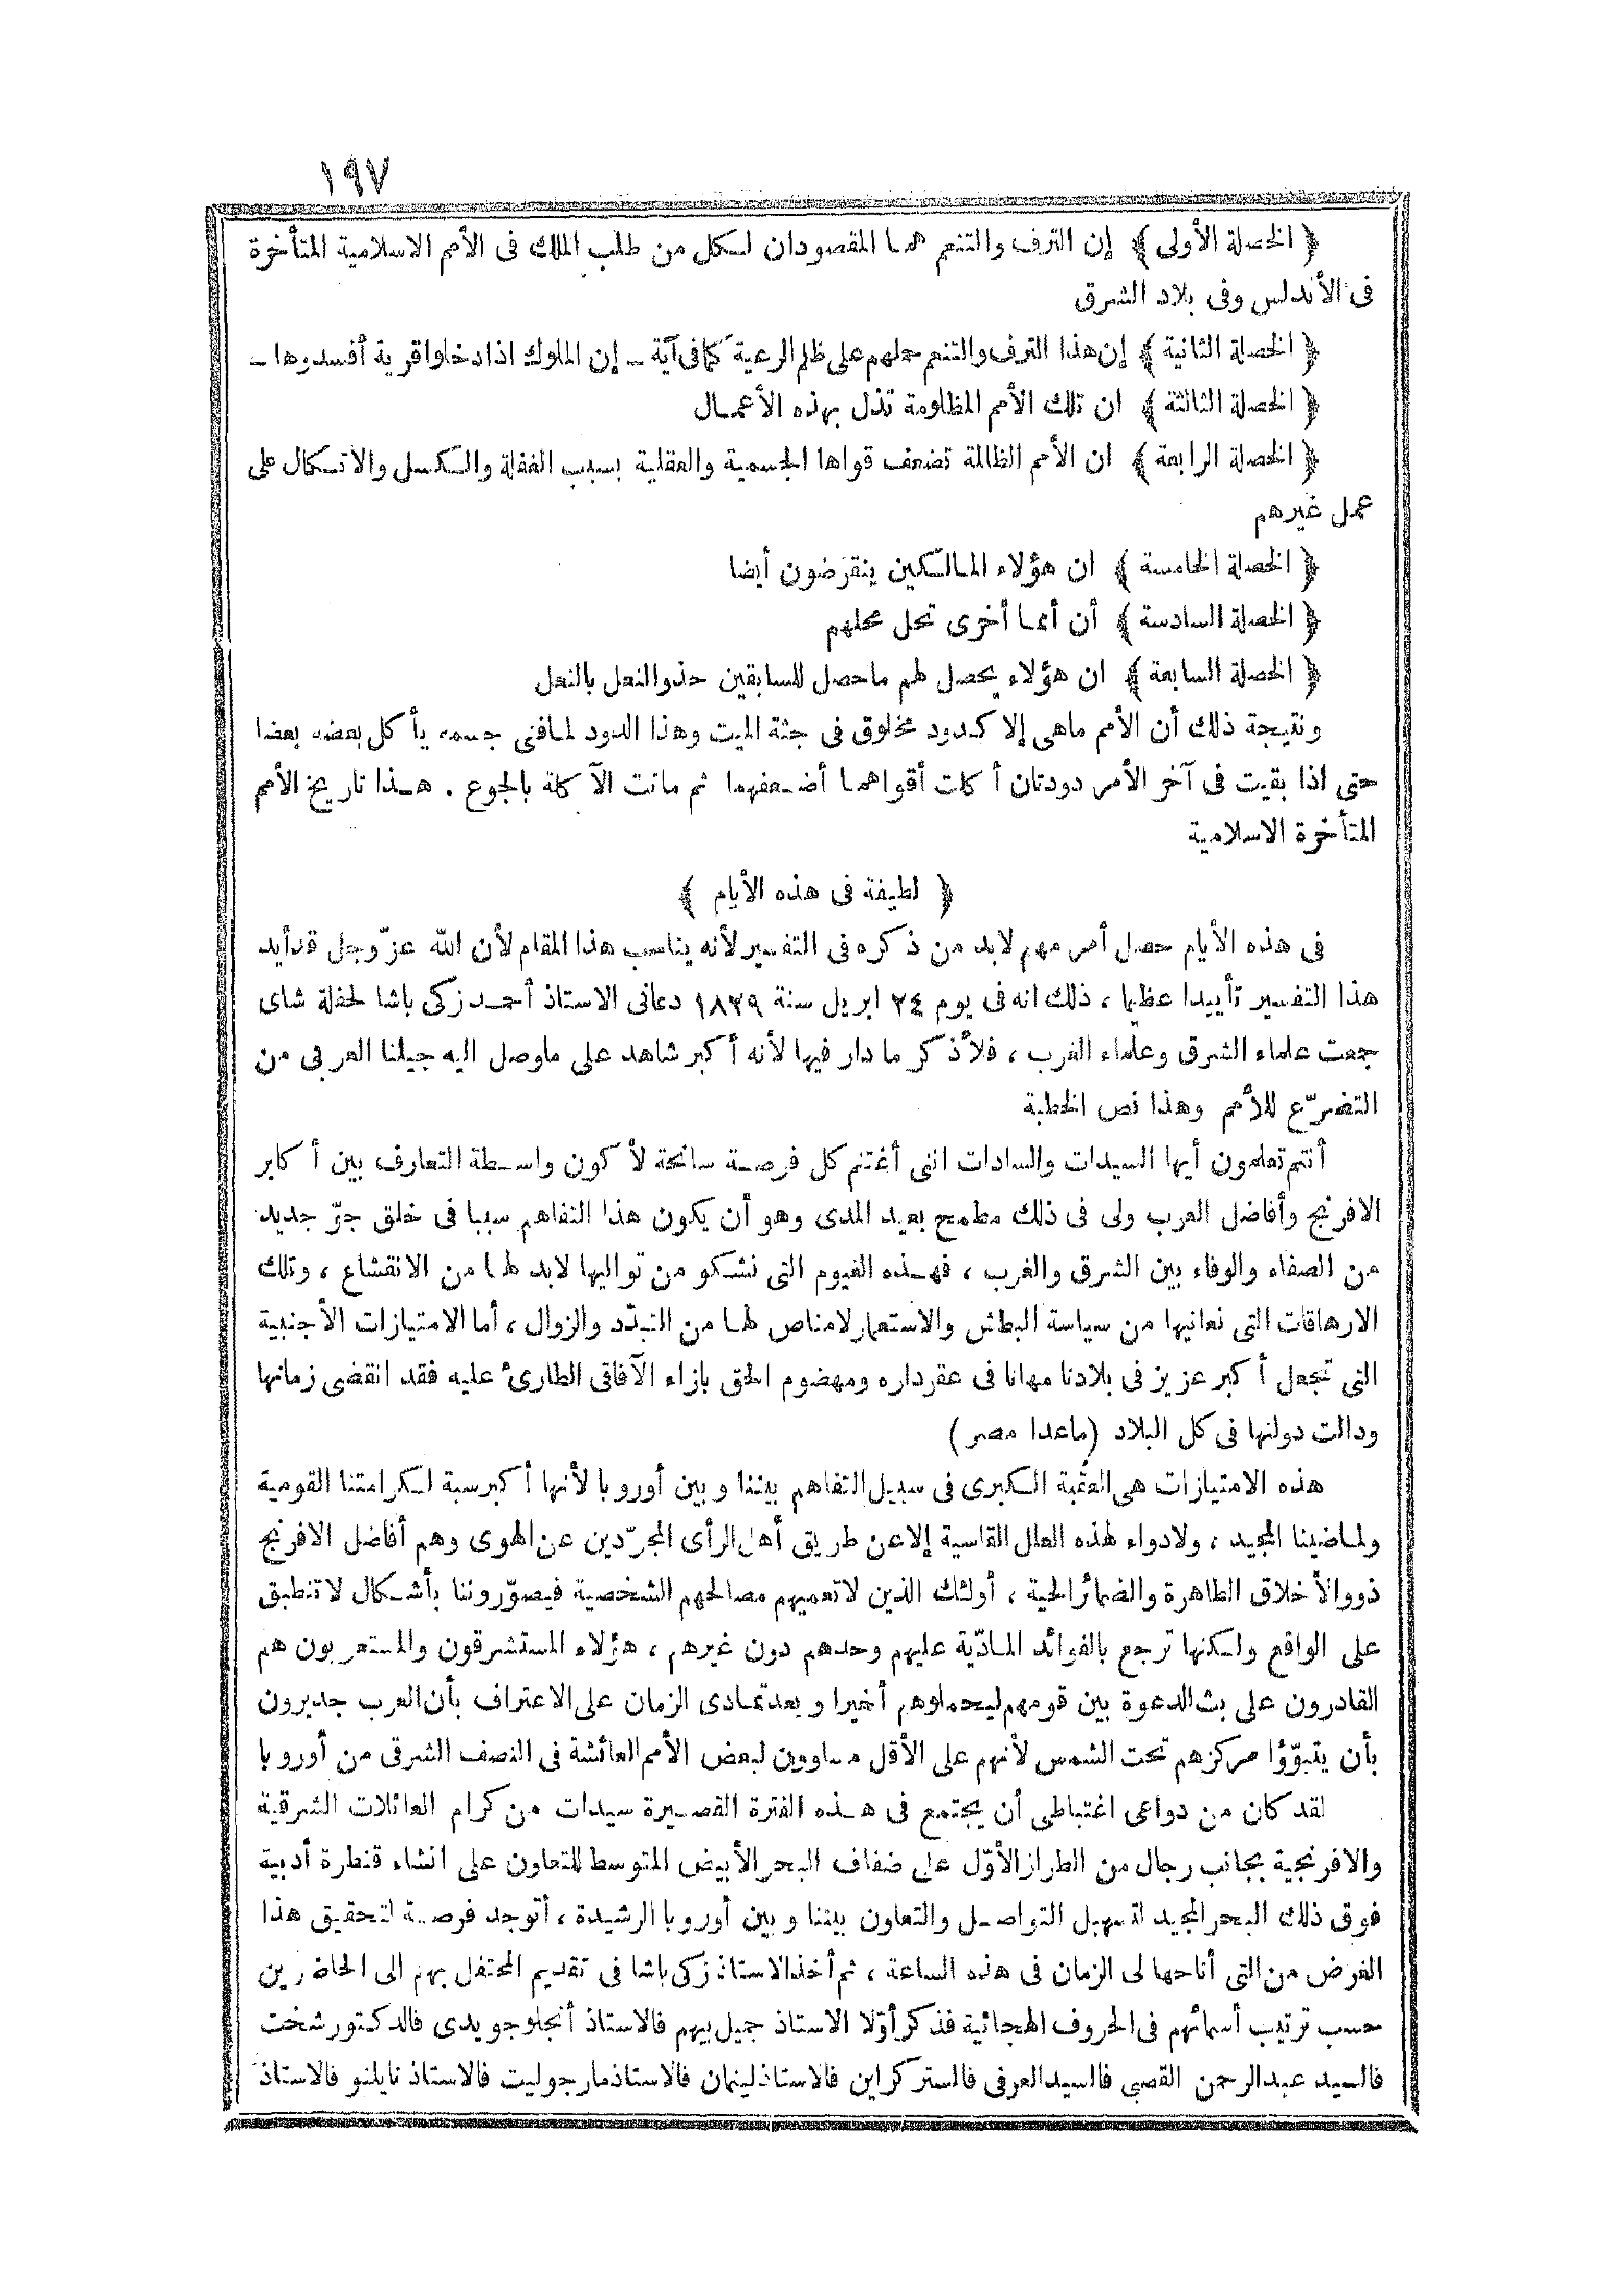 ١٩٧
﴿ الخصلة الأولى ﴾ إن الترف والتنعم هما المقصودان لكل من طلب الملك فى الأمم الاسلامية المتأخرة
فى الأندلس وفى بلاد الشرق
﴿ الخصلة الثانية ﴾ إن هذا الترف والتنعم حملهم على ظلم الرعية كما فى آية ـ إن الملوك اذا دخلوا قرية أفسدوها ـ
﴿ الخصلة الثالثة ﴾ ان تلك الأمم المظلومة تذل بهذه الأعمال
﴿ الخصلة الرابعة ﴾ ان الأمم الظالمة تضعف قواها الجسمية والعقلية بسبب الغفلة والكسل والاتكال على
عمل غيرهم
﴿ الخصلة الخامسة ﴾ ان هؤلاء المالكين ينقرضون أيضا
﴿ الخصلة السادسة ﴾ أن أمما أخرى تحل محلهم
﴿ الخصلة السابعة ﴾ ان هؤلاء يحصل لهم ماحصل للسابقين حذو النعل بالنعل
ونتيجة ذلك أن الأمم ماهى إلا كدود مخلوق فى جثة الميت وهذا الدود لمافنى جسمه يأكل بعضه بعضا
حتى اذا بقيت فى آخر الأمر دودتان أكلت أقواهما أضعفهما ثم ماتت الآكلة بالجوع . هذا تاريخ الأمم
المتأخرة الاسلامية
﴿ لطيفة فى هذه الأيام ﴾
فى هذه الأيام حصل أمر مهم لابد من ذكره فى التفسير لأنه يناسب هذا المقام لأن الله عزّ وجل قد أيد
هذا التفسير تأييدا عظيما ، ذلك انه فى يوم ٢٤ ابريل سنة ١٨٢٩ دعانى الاستاذ أحمد زكى باشا لحفلة شاى
جمعت علماء الشرق وعلماء الغرب ، فلأذكر ما دار فيها لأنه أكبر شاهد على ماوصل اليه جيلنا العربى من
التضرّع للأمم وهذا نص الخطبة
أنتم تعلمون أيها السيدات والسادات اننى أغتنم كل فرصة سانحة لأكون واسطة التعارف بين أكابر
الافرنج وأفاضل العرب ولى فى ذلك مطمح بعيد المدى وهو أن يكون هذا التفاهم سببا فى خلق جوّ جديد
من الصفاء والوفاء بين الشرق والغرب ، فهذه الغيوم التى نشكو من تواليها لابد لها من الانقشاع ، وتلك
الارهاقات التى نعانيها من سياسة البطش والاستعمار لامناص لها من التبدّد والزوال ، أما الامتيازات الأجنبية
التى تجعل أكبر عزيز فى بلادنا مهانا فى عقرداره ومهضوم الحق بازاء الآفاقى الطارئ عليه فقد انقضى زمانها
ودالت دولتها فى كل البلاد (ماعدا مصر)
هذه الامتيازات هى العقبة الكبرى فى سبيل التفاهم بيننا وبين أوروبا لأنها أكبرسبة لكرامتنا القومية
ولماضينا المجيد ، ولادواء لهذه العلل القاسية إلاعن طريق أهل الرأى المجرّدين عن الهوى وهم أفاضل الافرنج
ذوو الأخلاق الطاهرة والضمائر الحية ، أولئك الذين لاتعميهم مصالحهم الشخصية فيصوّروننا بأشكال لاتنطبق
على الواقع ولكنها ترجع بالفوائد المادّية عليهم وحدهم دون غيرهم ، هؤلاء المستشرقون والمستعربون هم
القادرون على بث الدعوة بين قومهم ليحملوهم أخيرا وبعد تمادى الزمان على الاعتراف بأن العرب جديرون
بأن يتبوّؤا مركزهم تحت الشمس لأنهم على الأقل مساوون لبعض الأمم العائشة فى النصف الشرقى من أوروبا
لقد كان من دواعى اغتباطى أن يجتمع فى هذه الفترة القصيرة سيدات من كرام العائلات الشرقية
والافرنجية بجانب رجال من الطراز الأوّل على ضفاف البحر الأبيض المتوسط للتعاون على انشاء قنطرة أدبية
فوق ذلك البحر المجيد لتسهيل التواصل والتعاون بيننا وبين أوروبا الرشيدة ، أتوجد فرصة لتحقيق هذا
الغرض من التى أتاحها لى الزمان فى هذه الساعة ، ثم أخذ الاستاذ زكى باشا فى تقديم المحتفل بهم الى الحاضرين
حسب ترتيب أسمائهم فى الحروف الهجائية فذكر أوّلا الاستاذ جميل بيهم فالاستاذ أنجلو جويدى فالدكتور شخت
فالسيد عبدالرحمن القصبى فالسيد العرفى فالمستر كراين فالاستاذ ليتمان فالاستاذ مارجوليت فالاستاذ نايلنو فالاستاذ